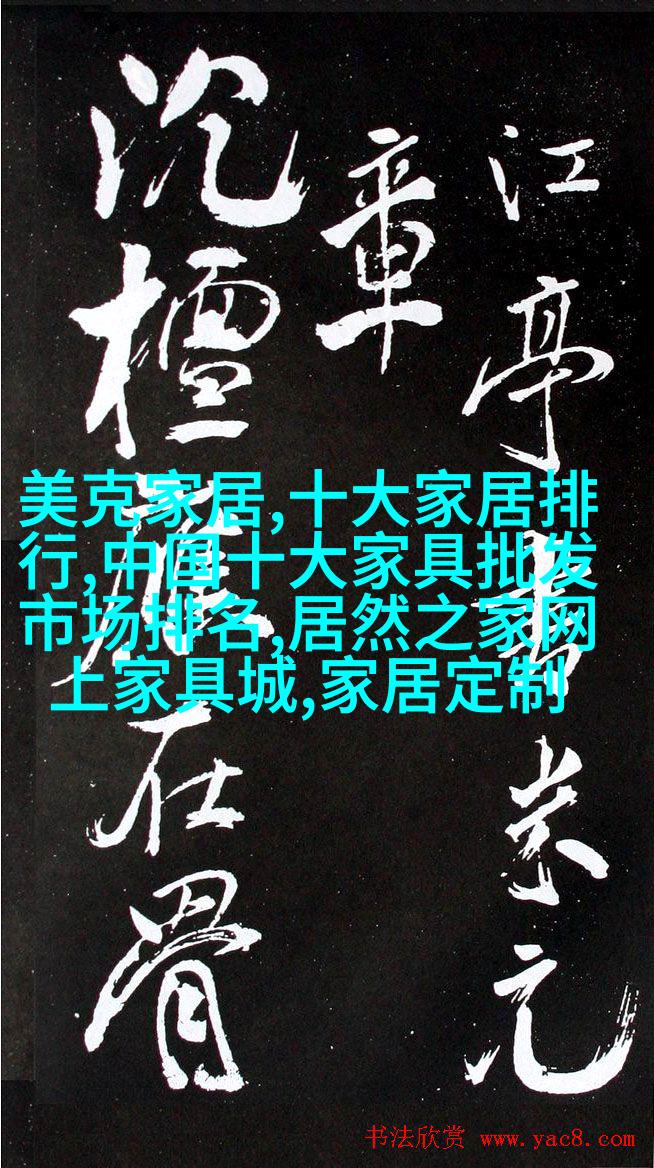 江亭書米元
章
沉檀在骨
美克家居,十大家居排
行,中国十大家具批发
市场排名,居然之家网
上家具城,家居定制
书法欣赏 www.yac8.com